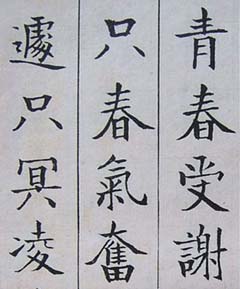 青春受謝
只春氣奮
遽只冥凌